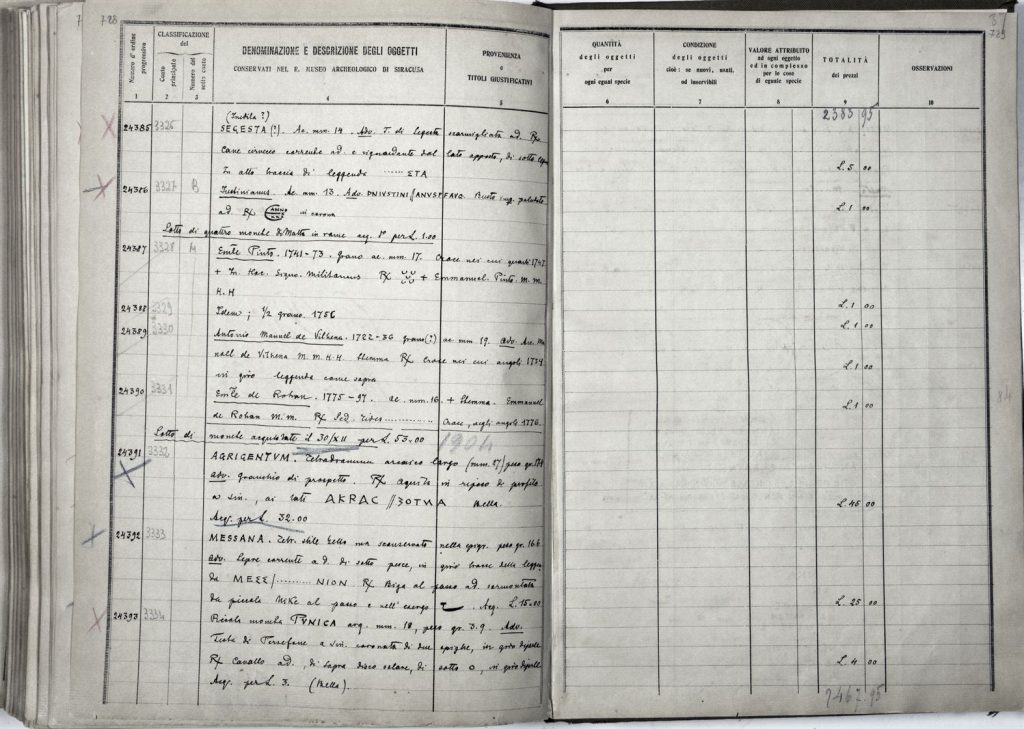 728
CLASSIFICAZIONE
del
Numero d'ordine progressivo
Conto principale
Numero del sotto conto
DENOMINAZIONE E DESCRIZIONE DEGLI OGGETTI
CONSERVATI NEL R. MUSEO ARCHEOLOGICO DI SIRACUSA
PROVENIENZA
o
TITOLI GIUSTIFICATIVI
1 2 3 4 5
24385 3326 SEGESTA (?). Ae. mm. 14. Adv. T. di Segesta scarmigliata ad. Rx
Cane cirneco corrente ad. e riguardante dal lato opposto, di sotto
In alto traccia di leggenda ...... ETA
24386 3327 B Justinianus. Ae. mm. 13. Adv. DNIVSTINI ANVSPFAVG. Busto imp. paludato
ad. Rx in corona
Lotto di quattro monete di Malta in rame acq. per L. 1.00
24387 3328 M Em.le Pinto. 1741-73. Grano ae. mm. 17. Croce nei cui quarti 1747.
+ In. Hoc. Signo. Militamus Rx + Emmanuel. Pinto. M. M.
H. H
24388 3329 Idem; 1/2 grano. 1756
24389 3330 Antonio Manuel de Vilhena. 1722-36 grano(?) ae mm 19. Adv. An. Ma
noel. de Vilhena M. M. H. H. Stemma Rx Croce nei cui angoli 1734
in giro leggenda come sopra
24390 3331 Em.le de Rohan. 1775-97. ae. mm. 16. + Stemma. Emmanuel
de Rohan M. m. Rx Sed. ............ Croce, negli angoli 1776.
Lotto di monete acquistate il 30/XII per L. 53.00 1904
24391 3332 AGRIGENTVM. Tetradramma arcaico largo (mm. 27) peso gr.
adv. granchio di prospetto. Rx aquila in riposo di profilo
a sin., ai lati AKRAC // ƎOTИA Bella.
Acq. per L. 32.00
24392 3333 MESSANA. Tetr. stile bello ma sconservato nella epigr. peso gr. 16.6
adv. Lepre corrente a d. di sotto pesce, in giro tracce della leggen
da ΜΕΣΣ/......... NION Rx Biga al passo ad. sormontata
da piccola Nike al passo e nell'esergo Acq. L. 15.00
24393 3334 Piccola moneta PVNICA arg. mm. 18, peso gr. 3.9. Adv.
Testa di Persefone a sin. coronata di due spighe, in giro di perle
Rx Cavallo ad., di sopra disco solare, di sotto O, in giro di perle
Acq. per L. 3. (Bella).
729
QUANTITÀ
degli oggetti
per
ogni egual specie
CONDIZIONE
degli oggetti
cioè: se nuovi, usati,
od inservibili
VALORE ATTRIBUITO
ad ogni oggetto
ed in complesso
per le cose
di eguale specie
TOTALITÀ
dei prezzi
OSSERVAZIONI
6 7 8 9 10
2383 95
L. 5 00
L. 1 00
L. 1 00
L. 1 00
L. 1 00
L. 1 00
L. 45 00
L. 25 00
L. 4 00
2467.95